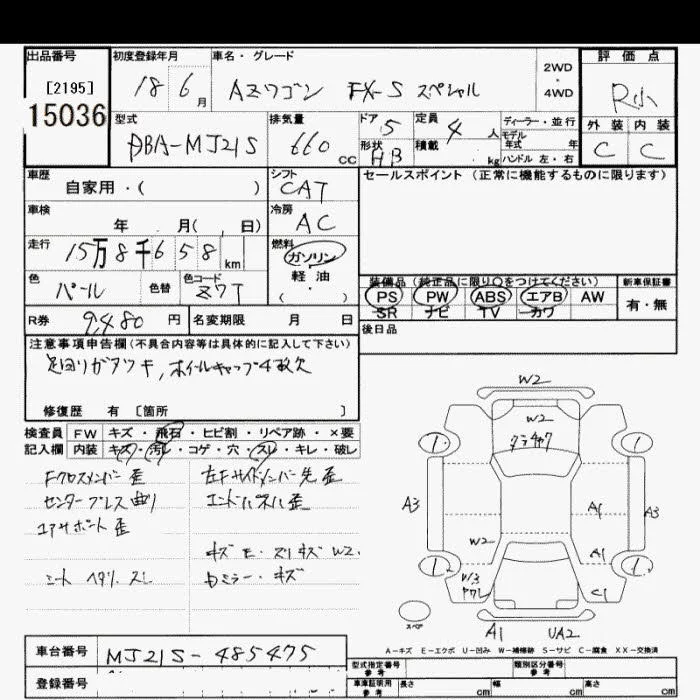 出品番号 初度登録年月 車名・グレード 評価点
[2195] 18 6 月 AZワゴン FX-S スペシャル 2WD・4WD R小
15036
型式 排気量 ドア 5 定員 4 人 ディーラー・並行 外装 内装
DBA-MJ21S 660 CC 形状 HB 積載 kg モデル年式 年 C C
ハンドル 左・右
車歴 シフト セールスポイント (正常に機能するものに限ります)
自家用・( ) CAT
車検 冷房
年 月( , 日) AC
走行 燃料
15万8千658 km ガソリン
色 色替 色コード 軽油 装備品(純正品に限り○をつけてください) 新車保証書
パール ZY7 ( ・ ) PS PW ABS エアB AW 有・無
SR ナビ TV カワ
R券 9,480 円 名変期限 月 日 後日品
注意事項申告欄(不具合内容等は具体的に記入して下さい)
足回りガタツキ, ホイールキャップ4枚欠
修復歴 有 [箇所 ]
検査員 FW キズ・飛石・ヒビ割・リペア跡・×要
記入欄 内装 キズ・汚レ・コゲ・穴・スレ・キレ・破レ
Fクロスメンバー 歪 左Fサイドメンバー先 歪
センタープレス 曲り エンドパネル 歪
コアサポート 歪
キズ E・スリキズ W2.
シート ヘタリ. スレ 内ミラー・キズ
W2
W2
1 1
A3 A1 A3
W2 A1
1 1
W3 ヤワレ C1
スペア A1 UA2
A-キズ E-エクボ U-凹み W-補修跡 S-サビ C-腐食 XX-交換済
車台番号 MJ21S-485475
登録番号
型式指定番号 参考 類別区分番号 参考
車庫証明用 参考 長さ cm 幅 cm 高さ cm